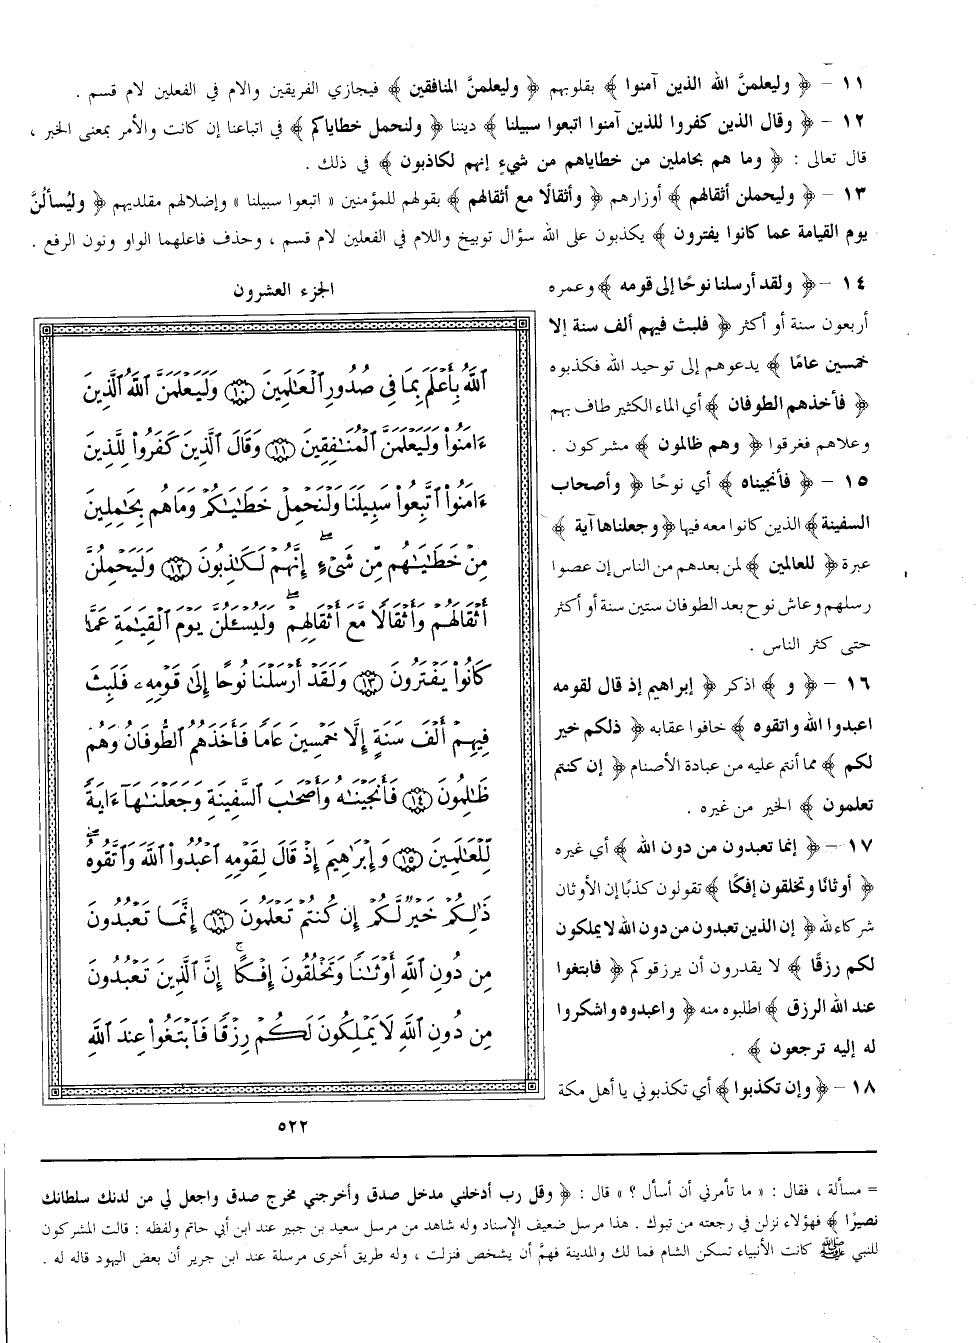 ١١ - ﴿ وليعلمنَّ الله الذين آمنوا ﴾ بقلوبهم ﴿ وليعلمنَّ المنافقين ﴾ فيجازي الفريقين والام في الفعلين لام قسم .
١٢ - ﴿ وقال الذين كفروا للذين آمنوا اتبعوا سبيلنا ﴾ ديننا ﴿ ولنحمل خطاياكم ﴾ في اتباعنا إن كانت والأمر بمعنى الخبر ،
قال تعالى : ﴿ وما هم بحاملين من خطاياهم من شيءٍ إنهم لكاذبون ﴾ في ذلك .
١٣ - ﴿ وليحملن أثقالهم ﴾ أوزارهم ﴿ وأثقالًا مع أثقالهم ﴾ بقولهم للمؤمنين « اتبعوا سبيلنا » وإضلالهم مقلديهم ﴿ وليُسألُنَّ
يوم القيامة عما كانوا يفترون ﴾ يكذبون على الله سؤال توبيخ واللام في الفعلين لام قسم ، وحذف فاعلهما الواو ونون الرفع .
١٤ - ﴿ ولقد أرسلنا نوحًا إلى قومه ﴾ وعمره
أربعون سنة أو أكثر ﴿ فلبث فيهم ألف سنة إلا
خمسين عامًا ﴾ يدعوهم إلى توحيد الله فكذبوه
﴿ فأخذهم الطوفان ﴾ أي الماء الكثير طاف بهم
وعلاهم فغرقوا ﴿ وهم ظالمون ﴾ مشركون .
١٥ - ﴿ فأنجيناه ﴾ أي نوحًا ﴿ وأصحاب
السفينة ﴾ الذين كانوا معه فيها ﴿ وجعلناها آية ﴾
عبرة ﴿ للعالمين ﴾ لمن بعدهم من الناس إن عصوا
رسلهم وعاش نوح بعد الطوفان ستين سنة أو أكثر
حتى كثر الناس .
١٦ - ﴿ و ﴾ اذكر ﴿ إبراهيم إذ قال لقومه
اعبدوا الله واتقوه ﴾ خافوا عقابه ﴿ ذلكم خير
لكم ﴾ مما أنتم عليه من عبادة الأصنام ﴿ إن كنتم
تعلمون ﴾ الخير من غيره .
١٧ - ﴿ إنما تعبدون من دون الله ﴾ أي غيره
﴿ أوثانًا وتخلقون إفكًا ﴾ تقولون كذبًا إن الأوثان
شركاء لله ﴿ إن الذين تعبدون من دون الله لا يملكون
لكم رزقًا ﴾ لا يقدرون أن يرزقوكم ﴿ فابتغوا
عند الله الرزق ﴾ اطلبوه منه ﴿ واعبدوه واشكروا
له إليه ترجعون ﴾ .
١٨ - ﴿ وإن تكذبوا ﴾ أي تكذبوني يا أهل مكة
الجزء العشرون
ٱللَّهُ بِأَعْلَمَ بِمَا فِى صُدُورِ ٱلْعَـٰلَمِينَ ١٠ وَلَيَعْلَمَنَّ ٱللَّهُ ٱلَّذِينَ
ءَامَنُوا۟ وَلَيَعْلَمَنَّ ٱلْمُنَـٰفِقِينَ ١١ وَقَالَ ٱلَّذِينَ كَفَرُوا۟ لِلَّذِينَ
ءَامَنُوا۟ ٱتَّبِعُوا۟ سَبِيلَنَا وَلْنَحْمِلْ خَطَـٰيَـٰكُمْ وَمَا هُم بِحَـٰمِلِينَ
مِنْ خَطَـٰيَـٰهُم مِّن شَىْءٍ ۖ إِنَّهُمْ لَكَـٰذِبُونَ ١٢ وَلَيَحْمِلُنَّ
أَثْقَالَهُمْ وَأَثْقَالًا مَّعَ أَثْقَالِهِمْ ۖ وَلَيُسْـَٔلُنَّ يَوْمَ ٱلْقِيَـٰمَةِ عَمَّا
كَانُوا۟ يَفْتَرُونَ ١٣ وَلَقَدْ أَرْسَلْنَا نُوحًا إِلَىٰ قَوْمِهِۦ فَلَبِثَ
فِيهِمْ أَلْفَ سَنَةٍ إِلَّا خَمْسِينَ عَامًا فَأَخَذَهُمُ ٱلطُّوفَانُ وَهُمْ
ظَـٰلِمُونَ ١٤ فَأَنجَيْنَـٰهُ وَأَصْحَـٰبَ ٱلسَّفِينَةِ وَجَعَلْنَـٰهَآ ءَايَةً
لِّلْعَـٰلَمِينَ ١٥ وَإِبْرَٰهِيمَ إِذْ قَالَ لِقَوْمِهِ ٱعْبُدُوا۟ ٱللَّهَ وَٱتَّقُوهُ ۖ
ذَٰلِكُمْ خَيْرٌ لَّكُمْ إِن كُنتُمْ تَعْلَمُونَ ١٦ إِنَّمَا تَعْبُدُونَ
مِن دُونِ ٱللَّهِ أَوْثَـٰنًا وَتَخْلُقُونَ إِفْكًا ۚ إِنَّ ٱلَّذِينَ تَعْبُدُونَ
مِن دُونِ ٱللَّهِ لَا يَمْلِكُونَ لَكُمْ رِزْقًا فَٱبْتَغُوا۟ عِندَ ٱللَّهِ
٥٢٢
= مسألة ، فقال : « ما تأمرني أن أسأل ؟ » قال : ﴿ وقل رب أدخلني مدخل صدق وأخرجني مخرج صدق واجعل لي من لدنك سلطانك
نصيرًا ﴾ فهؤلاء نزلن في رجعته من تبوك . هذا مرسل ضعيف الإسناد وله شاهد من مرسل سعيد بن جبير عند ابن أبي حاتم ولفظه : قالت المشركون
للنبي ﷺ كانت الأنبياء تسكن الشام فما لك والمدينة فهمَّ أن يشخص فنزلت ، وله طريق أخرى مرسلة عند ابن جرير أن بعض اليهود قاله له .